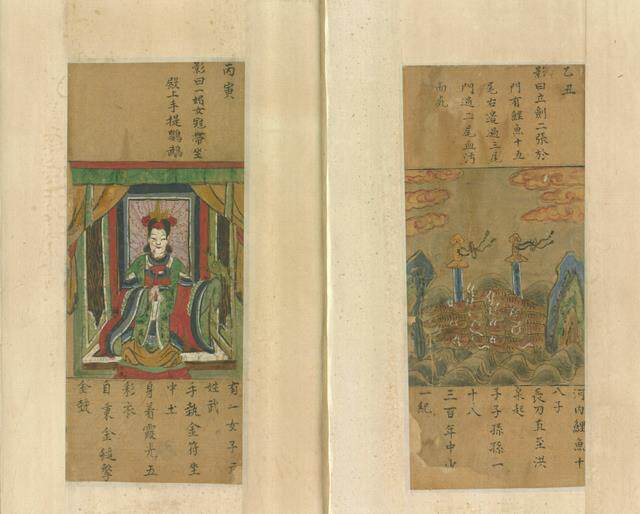 乙丑
影曰立劍二張於
門有鯉魚十五
尾右邊過三尾
門過二尾血污
而
河内鯉魚十
八子
長刀直至洪
泉起
子子孫孫一
十八
三百年中少
一紀
丙寅
影曰一婦女冠帶坐
殿上手提鸚鵡
有一女子
姓武
手執金符坐
中土
身着霞光五
彩衣
自金擊
金